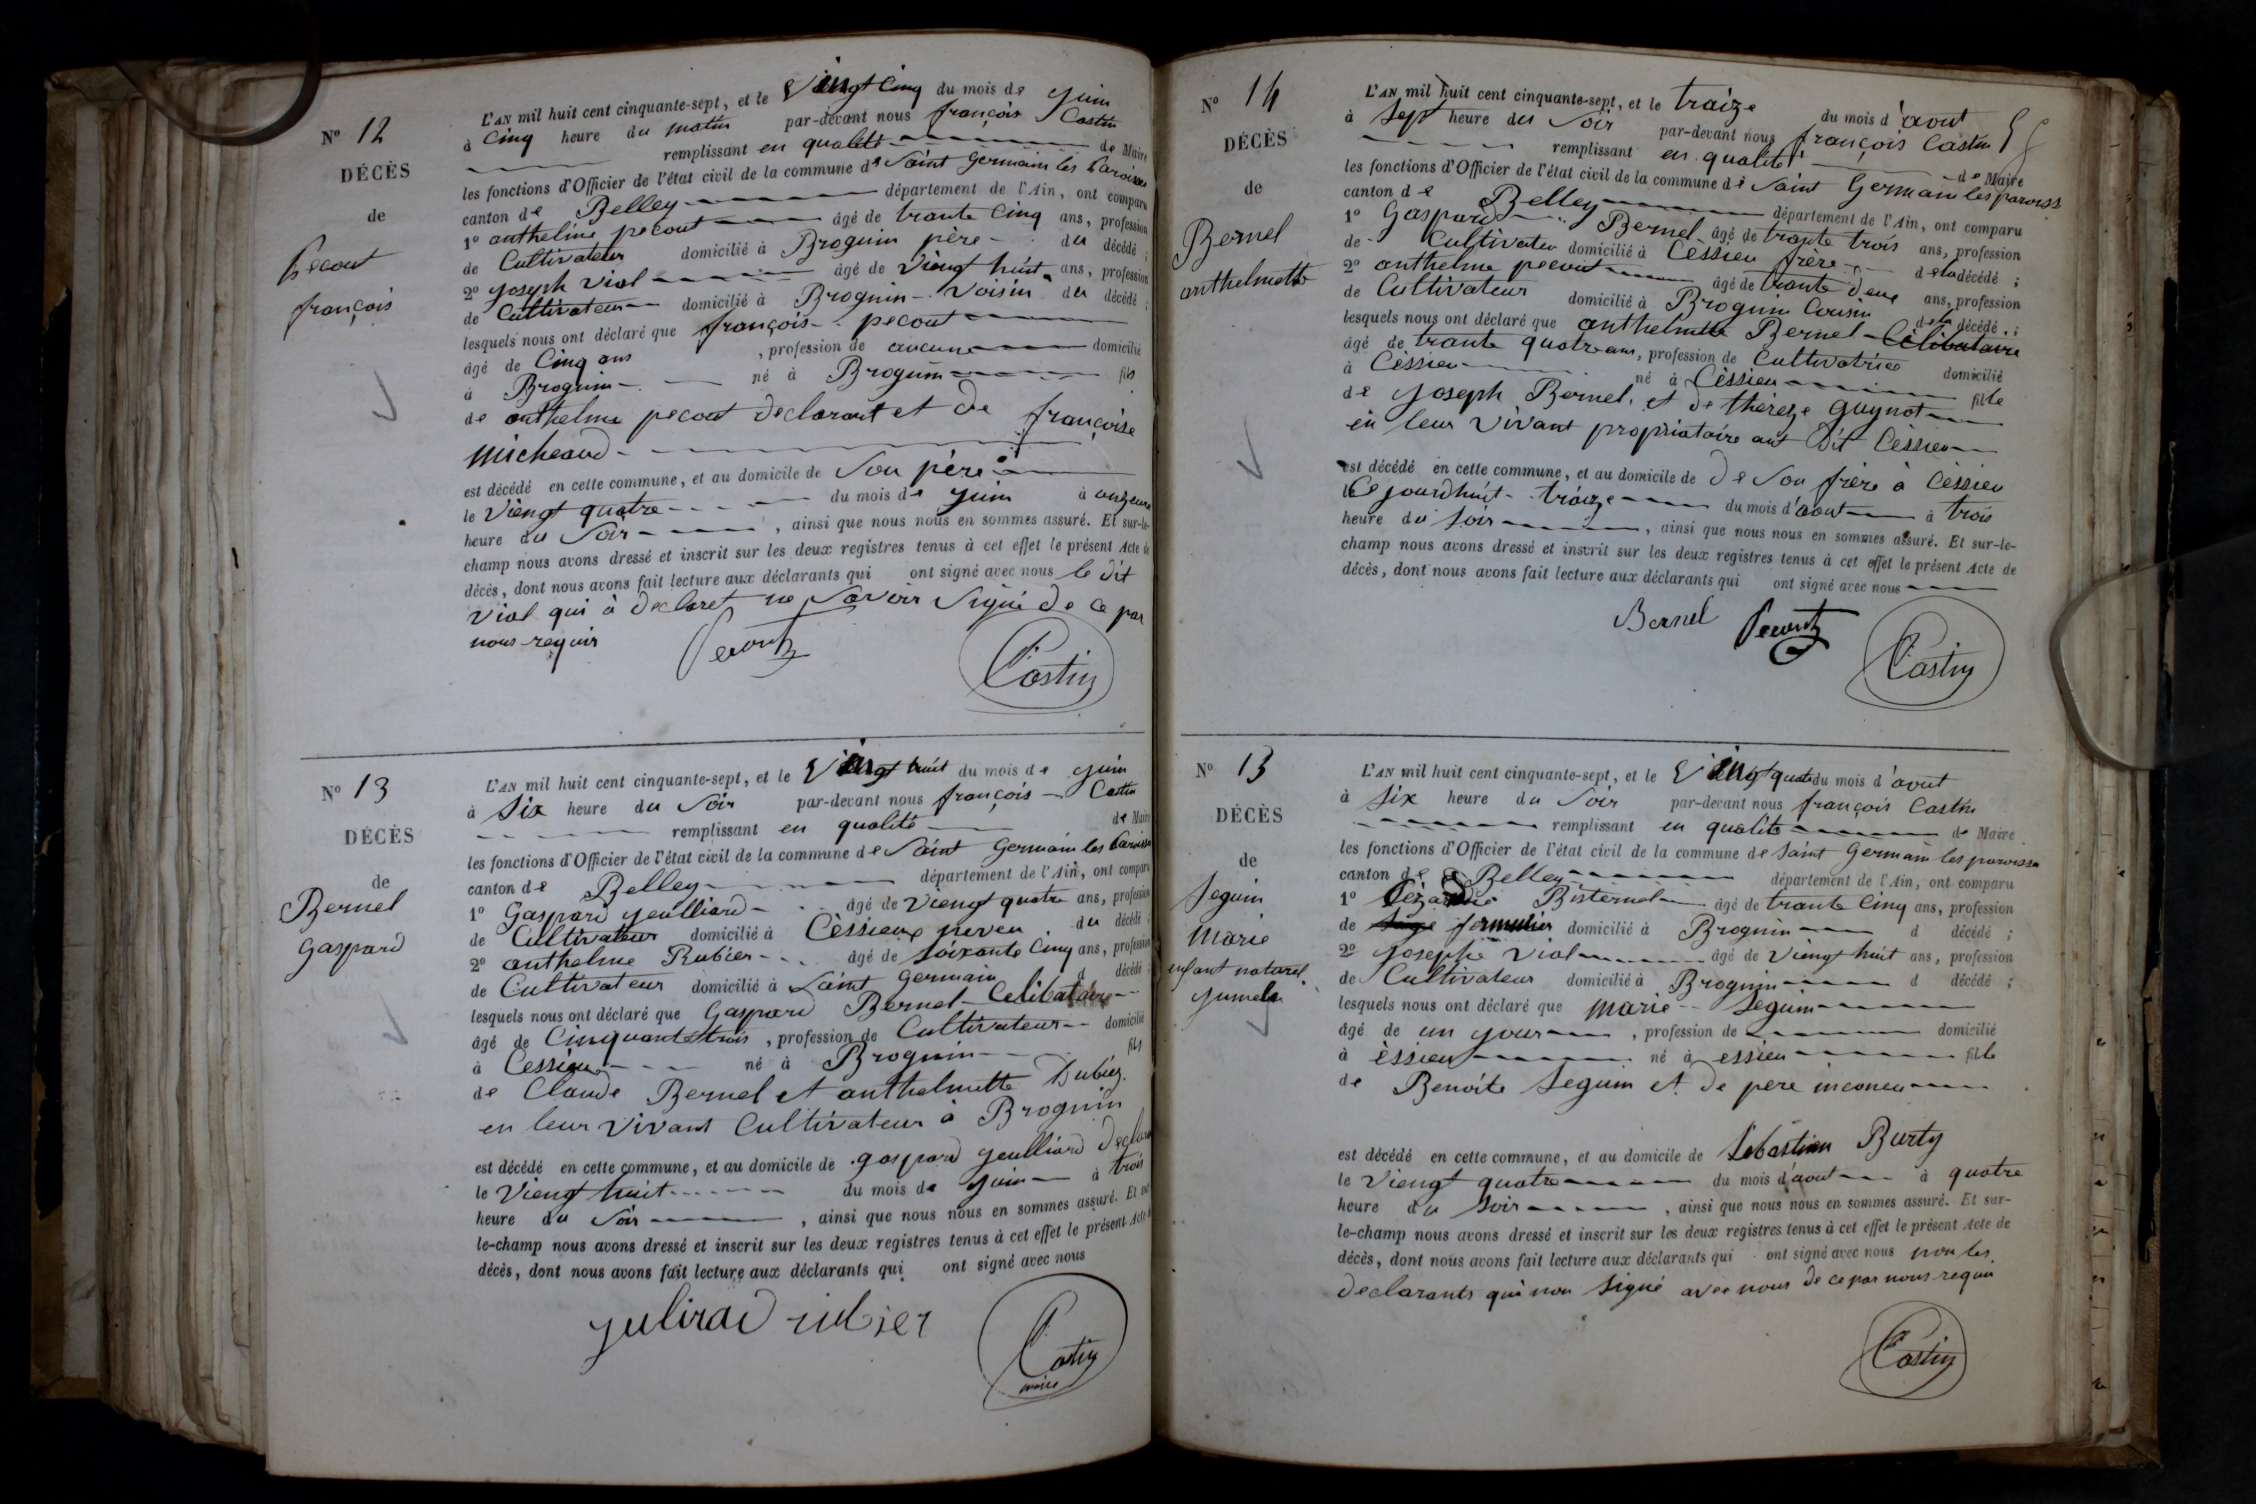 N° 12
DÉCÈS
de
Pecout
françois
L'AN mil huit cent cinquante-sept, et le Vingt Cinq du mois de juin
à Cinq heure du matin par-devant nous françois Castin
remplissant en qualité de Maire
les fonctions d'Officier de l'état civil de la commune de Saint germain les Paroisses
canton de Belley département de l'Ain, ont comparu
1° anthelme pecout âgé de trante Cinq ans, profession
de Cultivateur domicilié à Brognin père du décédé ;
2° joseph Vial âgé de Viengt huit ans, profession
de Cultivateur domicilié à Brognin Voisin du décédé ;
lesquels nous ont déclaré que françois pecout
âgé de Cinq ans , profession de aucune domicilié
à Brognin né à Brognin fils
de anthelme pecout declarant et de françoise
Micheaud
est décédé en cette commune, et au domicile de Son père
le Viengt quatre du mois de juin à onze
heure du Soir , ainsi que nous nous en sommes assuré. Et sur-le-
champ nous avons dressé et inscrit sur les deux registres tenus à cet effet le présent Acte de
décès, dont nous avons fait lecture aux déclarants qui ont signé avec nous le dit
Vial qui à declaret ne Savoir Signé de ce par
nous requir
Pecout
Castin
N° 13
DÉCÈS
de
Bernel
gaspard
L'AN mil huit cent cinquante-sept, et le Vingt huit du mois de juin
à Six heure du Soir par-devant nous françois Castin
remplissant en qualité de Maire
les fonctions d'Officier de l'état civil de la commune de Saint germain les Paroisses
canton de Belley département de l'Ain, ont comparu
1° Gaspard jeulliard âgé de Viengt quatre ans, profession
de Cultivateur domicilié à Cèssieux neveu du décédé ;
2° anthelme Rubier âgé de Soixante Cinq ans, profession
de Cultivateur domicilié à Saint germain d décédé ;
lesquels nous ont déclaré que Gaspard Bernel Celibataire
âgé de Cinquant trois , profession de Cultivateur domicilié
à Cessieux né à Brognin fils
de Claude Bernel et anthelmette Dubiez
en leur Vivant Cultivateur à Brognin
est décédé en cette commune, et au domicile de gaspard jeulliard
le Viengt huit du mois de juin à trois
heure du Soir , ainsi que nous nous en sommes assuré. Et sur-
le-champ nous avons dressé et inscrit sur les deux registres tenus à cet effet le présent Acte de
décès, dont nous avons fait lecture aux déclarants qui ont signé avec nous
julirad rubier
Castin
maire
N° 14
DÉCÈS
de
Bernel
anthelmette
L'AN mil huit cent cinquante-sept, et le traize du mois d'aout
à Sept heure du Soir par-devant nous françois Castin
remplissant en qualité de Maire
les fonctions d'Officier de l'état civil de la commune de Saint Germain les paroiss
canton de Belley département de l'Ain, ont comparu
1° Gaspard Bernel âgé de trante trois ans, profession
de Cultivateu domicilié à Cèssieu frère dela décédé ;
2° anthelme pecout âgé de trante deux ans, profession
de Cultivateur domicilié à Brognin Cousin dela décédé ;
lesquels nous ont déclaré que anthelmette Bernel Célibataire
âgé de trante quatre ans, profession de Cultivatrice domicilié
à Cèssieu né à Cèssieu fille
de joseph Bernel et de thèreze guynot
en leur Vivant propriataire aut dit Cèssieu
est décédé en cette commune, et au domicile de de Son frère à Cèssieu
le Ce jourdhuit traize du mois d'aout à trois
heure du Soir , ainsi que nous nous en sommes assuré. Et sur-le-
champ nous avons dressé et inscrit sur les deux registres tenus à cet effet le présent Acte de
décès, dont nous avons fait lecture aux déclarants qui ont signé avec nous
Bernel Pecout
Castin
N° 15
DÉCÈS
de
Seguin
Marie
enfant naturel
jumele
L'AN mil huit cent cinquante-sept, et le Vingt quatre du mois d'aout
à Six heure du Soir par-devant nous françois Castin
remplissant en qualité de Maire
les fonctions d'Officier de l'état civil de la commune de Saint Germain les paroisses
canton de Belley département de l'Ain, ont comparu
1° Bisternel âgé de trante Cinq ans, profession
de domicilié à Brognin d décédé ;
2° Josephe Vial âgé de Viengt huit ans, profession
de Cultivateur domicilié à Brognin d décédé ;
lesquels nous ont déclaré que Marie Seguin
âgé de un jour , profession de domicilié
à èssieu né à essieu fille
de Benoite Seguin et de pere inconeu
est décédé en cette commune, et au domicile de Sébastien Burty
le Viengt quatre du mois d'aout à quatre
heure du Soir , ainsi que nous nous en sommes assuré. Et sur-
le-champ nous avons dressé et inscrit sur les deux registres tenus à cet effet le présent Acte de
décès, dont nous avons fait lecture aux déclarants qui ont signé avec nous non les
declarants qui non Signé avec nous de ce par nous requir
Castin